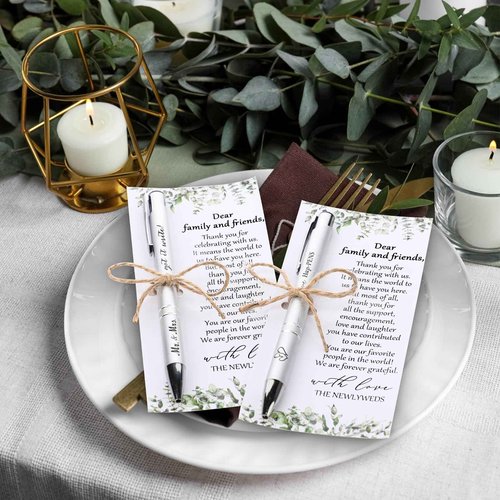 Dear
family and friends,
Thank you for
celebrating with us.
It means the world to us
to have you here.
most of all,
thank you for
all the support,
love and laughter
you have
to our
You are our
people in the world!
We are forever
with
THE
Mr. & Mrs.
got it write!
Dear
family and friends,
Thank you for
celebrating with us.
It means the world to us
to have you here.
most of all,
thank you for
all the support,
encouragement,
love and laughter
you have contributed
to our lives.
You are our favorite
people in the world!
We are forever grateful.
with love
THE NEWLYWEDS
Happiness